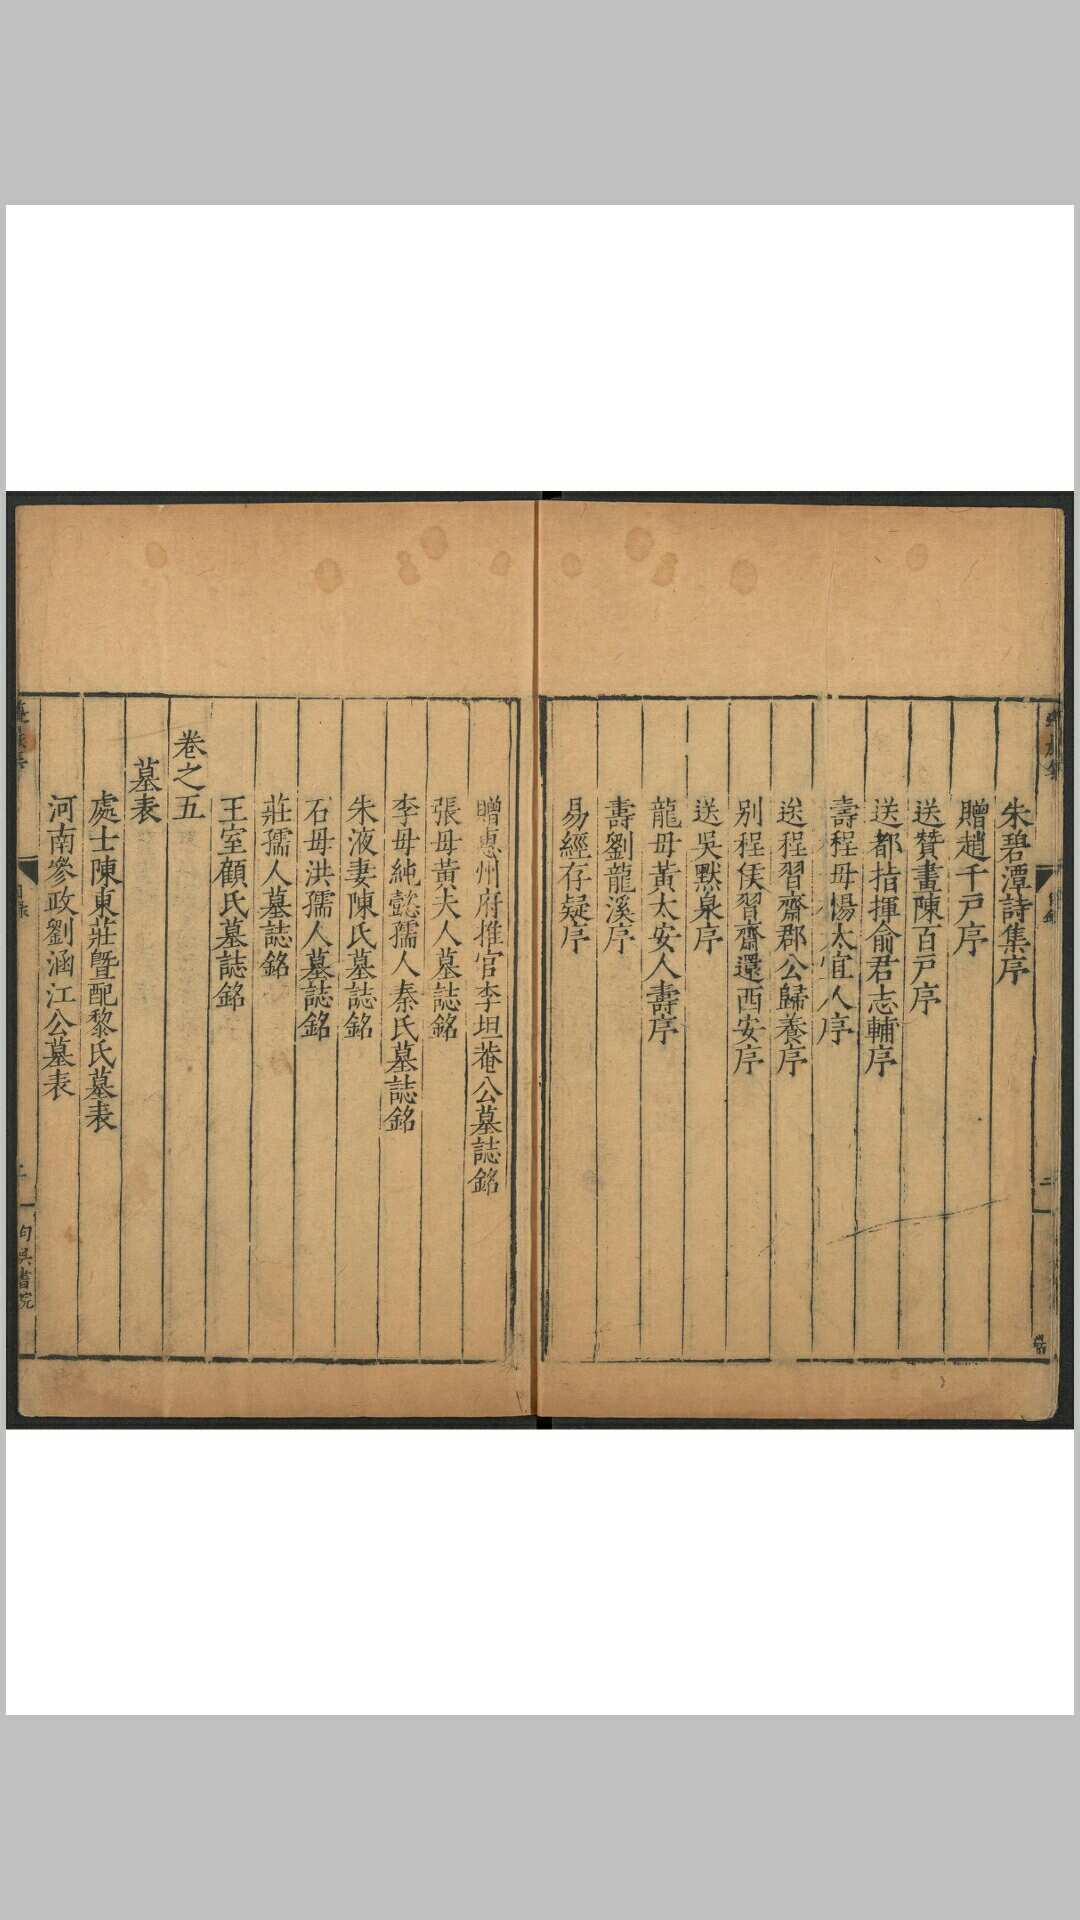 朱碧潭詩集序
贈趙千戸序
送贊畫陳百戸序
送都指揮俞君志輔序
壽程母楊太宜人序
送程習齋郡公歸養序
别程侯習齋還西安序
送吳默泉序
龍母黃太安人壽序
壽劉龍溪序
易經存疑序
贈惠州府推官李坦菴公墓誌銘
張母黃夫人墓誌銘
李母純懿孺人秦氏墓誌銘
朱液妻陳氏墓誌銘
石母洪孺人墓誌銘
莊孺人墓誌銘
王室顧氏墓誌銘
卷之五
墓表
處士陳東莊曁配黎氏墓表
河南參政劉涵江公墓表
句吳書院